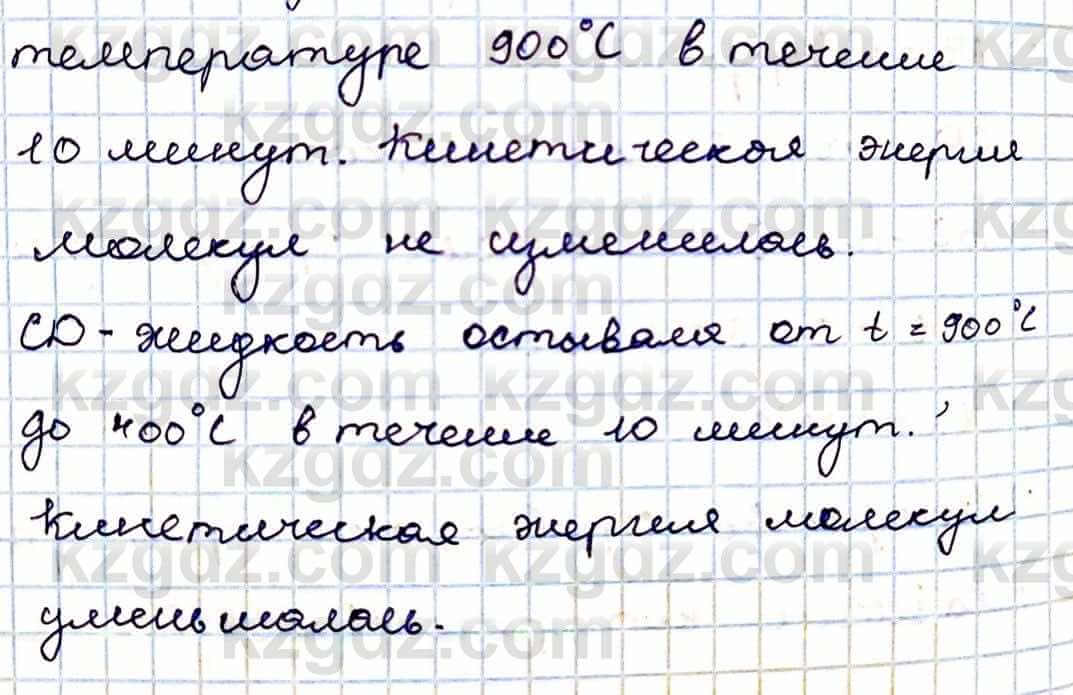 температуре 900°С в течение
10 минут. Кинетическая энергия
молекул не изменилась.
CD - жидкость остывала от t = 900°С
до 400°С в течение 10 минут.
Кинетическая энергия молекул
уменьшалась.
kzgdz.com